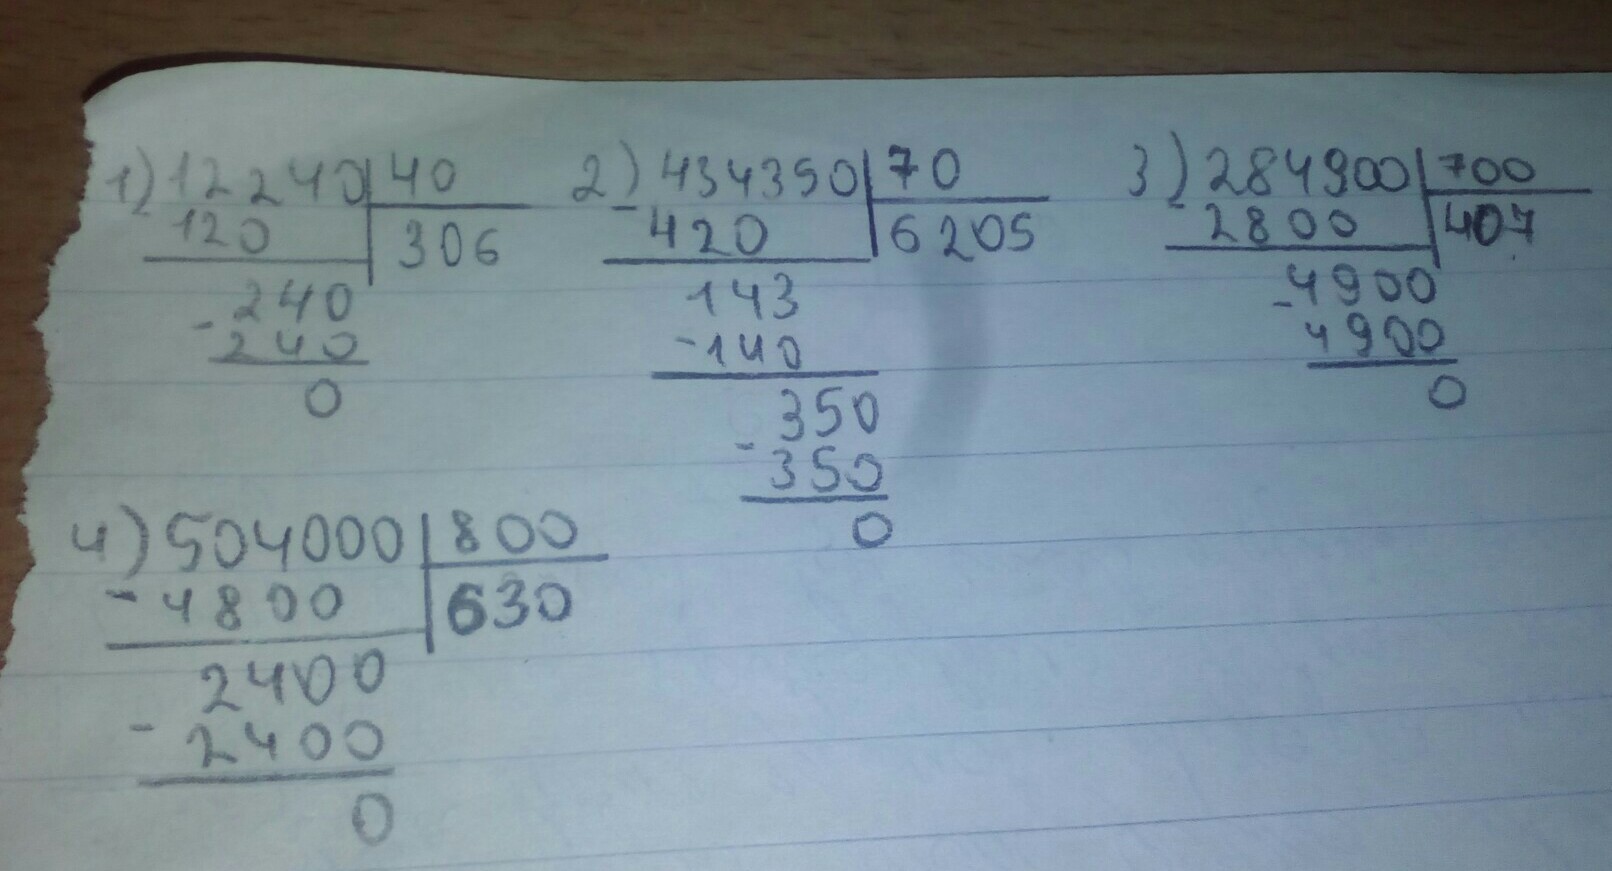 1) 12240 | 40
120 | 306
- 240
240
0
2) 434350 | 70
- 420 | 6205
143
- 140
350
- 350
0
3) 284900 | 700
- 2800 | 407
4900
- 4900
0
4) 504000 | 800
- 4800 | 630
2400
- 2400
0